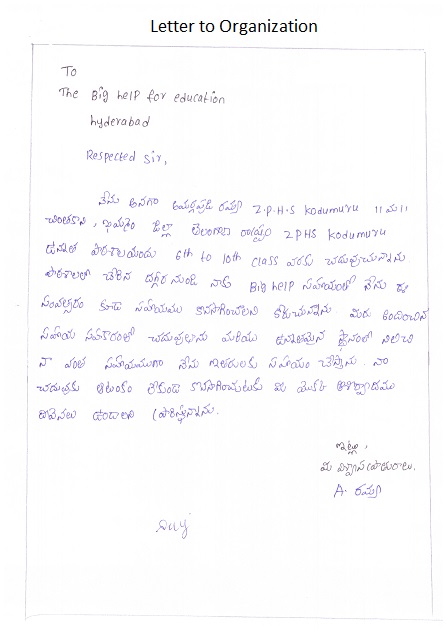 Letter to Organization
To
The Big help for education
hyderabad
Respected Sir,
నేను అనగా అమర్లపూడి రమ్య Z.P.H.S Kodumuru
చింతకాని, ఖమ్మం జిల్లా తెలంగాణ రాష్ట్రం ZPHS Kodumuru
ఉన్నత పాఠశాలయందు 6th to 10th class వరకు చదువుచున్నాను
పాఠశాలలో చేరిన దగ్గర నుండి నాకు Big help సహాయంలో నేను ఈ
సంవత్సరం కూడ సహాయము కొనసాగించాలని కోరుచున్నాను. మీరు అందించిన
సహాయ సహకారంలో చదువుతాను మరియు ఉన్నతమైన స్థానంలో నిలిచి
నా వంతు సహాయముగా నేను ఇతరులకు సహాయం చేస్తాను. నా
చదువుకు ఆటంకం లేకుండ కొనసాగించుటకు మీ యొక్క ఆశీర్వాదము
దీవెనలు ఉండాలని ప్రార్థిస్తున్నాను.
ఇట్లు,
మీ విశ్వాసపాత్రురాలు,
A. రమ్య